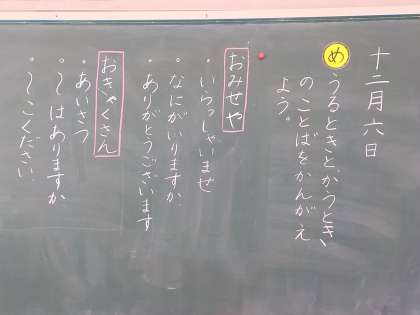 十二月六日
め うるときと、かうとき、
のことばをかんがえ
よう。
おみせや
・いらっしゃいませ
・なにがいりますか
・ありがとうございます
おきゃくさん
・あいさつ
・〜はありますか
・〜ください。